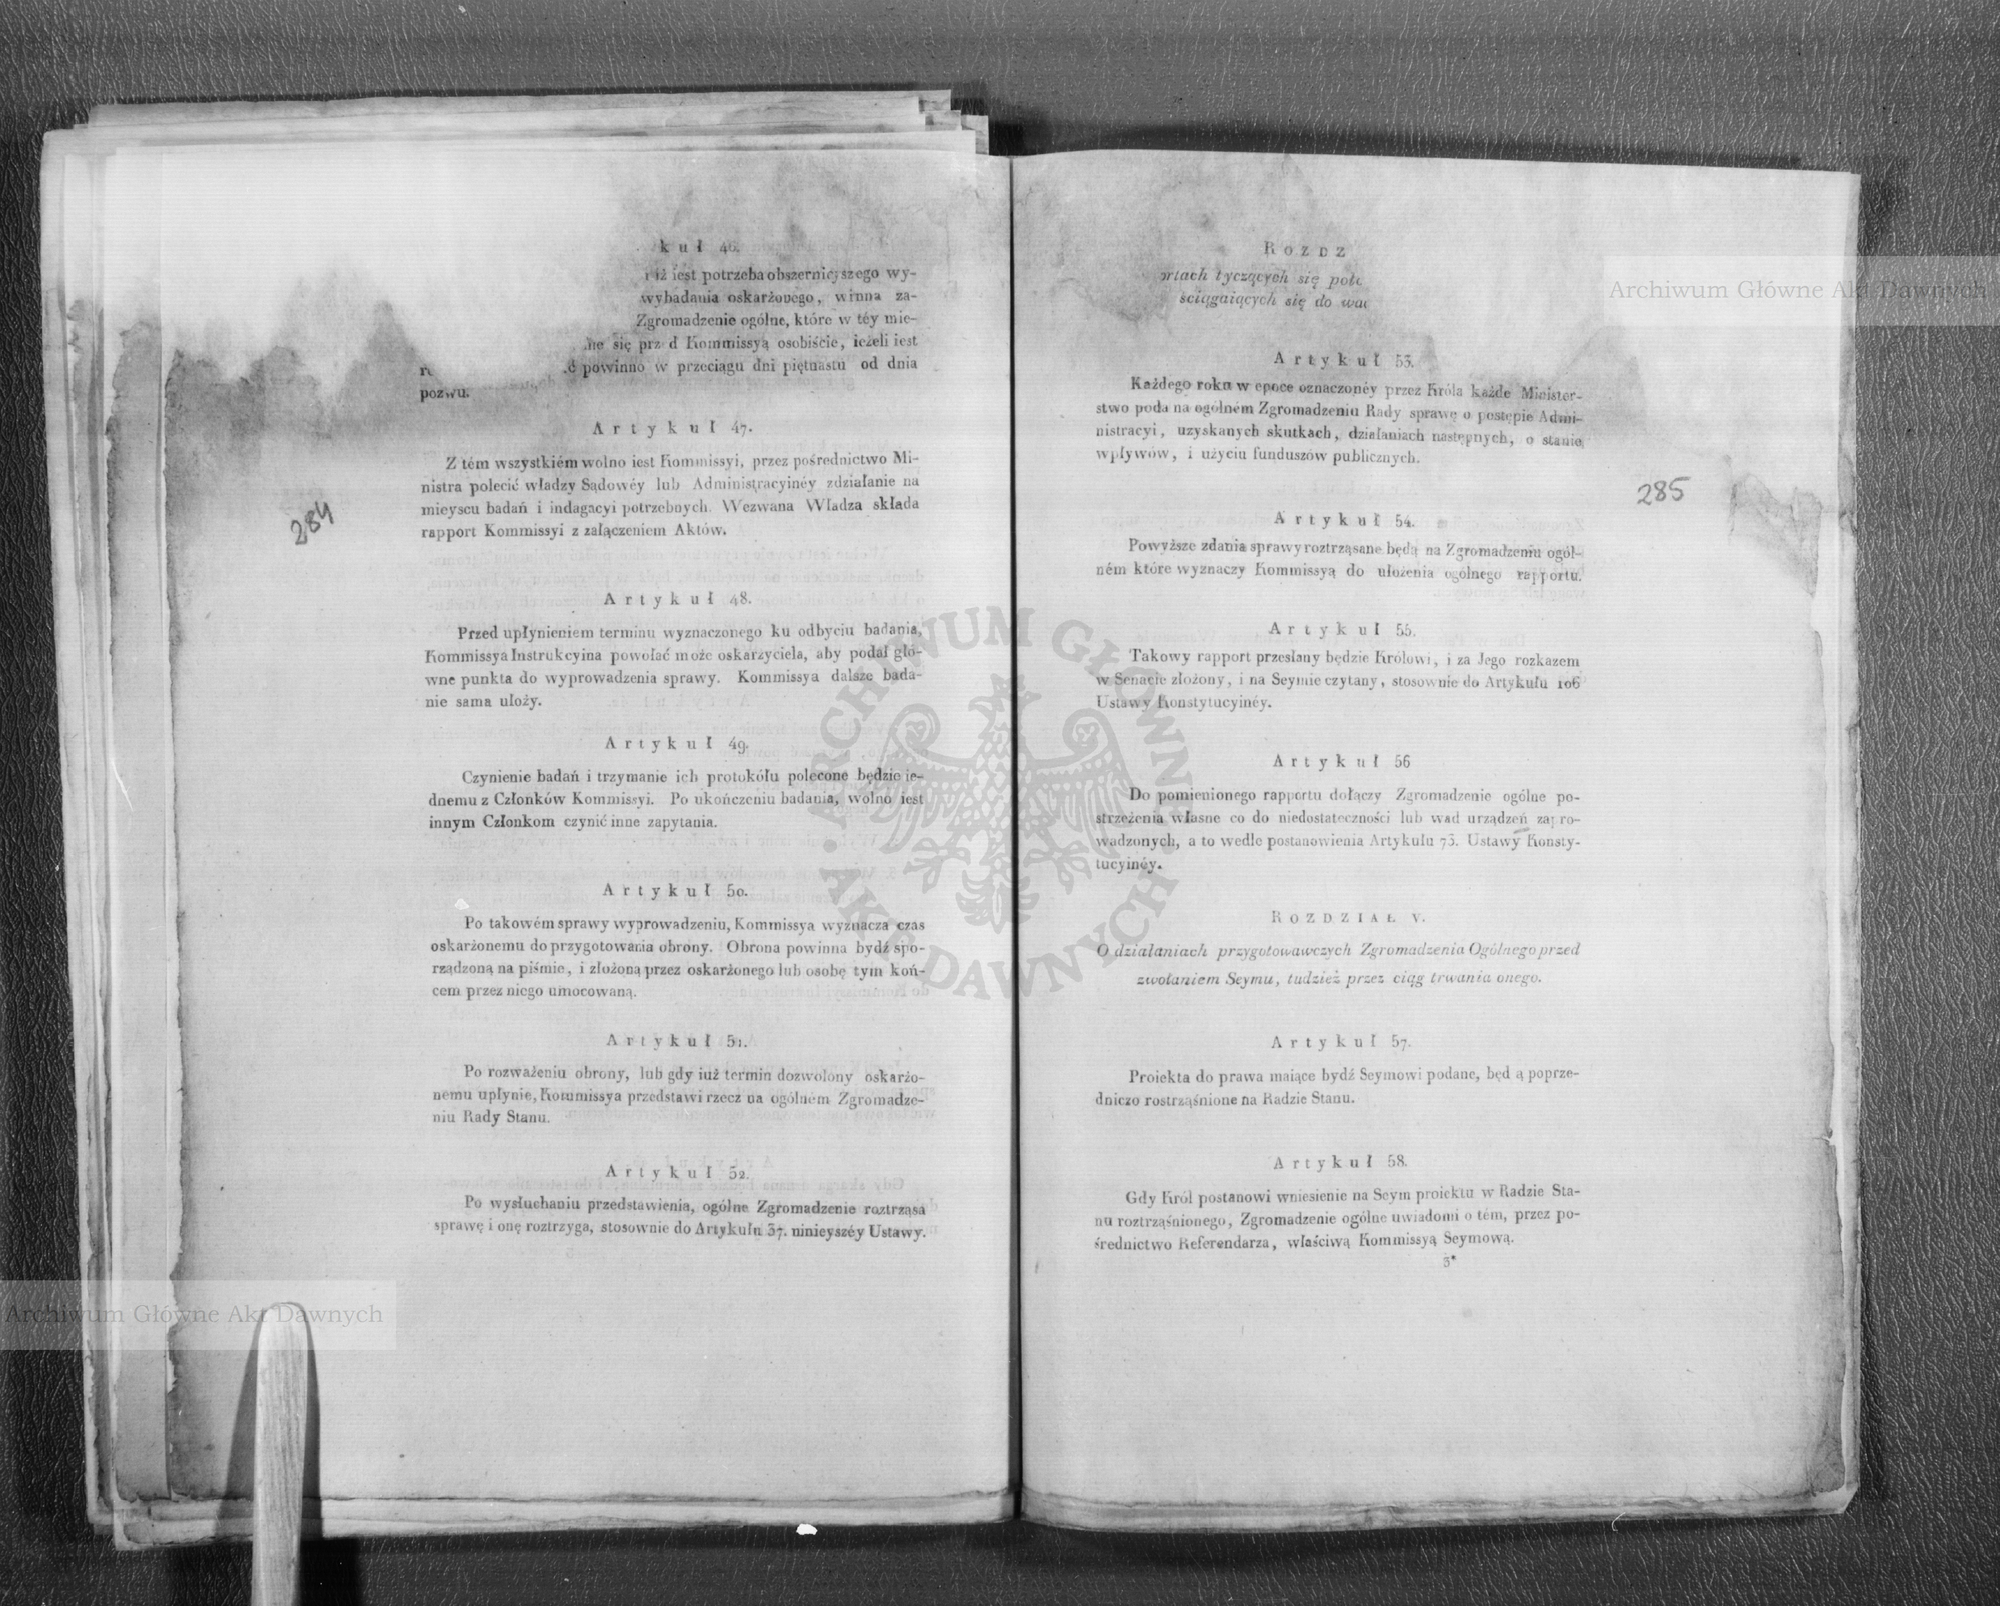 kuł 46.
iż iest potrzeba obszernieyszego wy-
wybadania oskarżonego, winna za-
Zgromadzenie ogólne, które w téy mie-
się przed Kommissyą osobiście, ieżeli iest
powinno w przeciągu dni piętnastu od dnia
pozwu.
Artykuł 47.
Z tém wszystkiém wolno iest Kommissyi, przez pośrednictwo Mi-
nistra polecić władzy Sądowéy lub Administracyinéy zdziałanie na
mieyscu badań i indagacyi potrzebnych. Wezwana Władza składa
rapport Kommissyi z załączeniem Aktów.
284
Artykuł 48.
Przed upłynieniem terminu wyznaczonego ku odbyciu badania,
Kommissya Instrukcyina powołać może oskarżyciela, aby podał głó-
wne punkta do wyprowadzenia sprawy. Kommissya dalsze bada-
nie sama ułoży.
Artykuł 49.
Czynienie badań i trzymanie ich protokółu polecone będzie ie-
dnemu z Członków Kommissyi. Po ukończeniu badania, wolno iest
innym Członkom czynić inne zapytania.
Artykuł 50.
Po takowém sprawy wyprowadzeniu, Kommissya wyznacza czas
oskarżonemu do przygotowania obrony. Obrona powinna bydź spo-
rządzoną na piśmie, i złożoną przez oskarżonego lub osobę tym koń-
cem przez niego umocowaną.
Artykuł 51.
Po rozważeniu obrony, lub gdy iuż termin dozwolony oskarżo-
nemu upłynie, Kommissya przedstawi rzecz na ogólném Zgromadze-
niu Rady Stanu.
Artykuł 52.
Po wysłuchaniu przedstawienia, ogólne Zgromadzenie roztrząsa
sprawę i onę roztrzyga, stosownie do Artykułu 37. ninieyszéy Ustawy.
ROZDZ
ortach tyczących się poło
ściągaiących się do wad
Artykuł 53.
Każdego roku w epoce oznaczonéy przez Króla każde Minister-
stwo poda na ogólném Zgromadzeniu Rady sprawę o postępie Admi-
nistracyi, uzyskanych skutkach, działaniach następnych, o stanie
wpływów, i użyciu funduszów publicznych.
285
Artykuł 54.
Powyższe zdania sprawy roztrząsane będą na Zgromadzeniu ogól-
ném które wyznaczy Kommissyą do ułożenia ogólnego rapportu.
Artykuł 55.
Takowy rapport przesłany będzie Królowi, i za Jego rozkazem
w Senacie złożony, i na Seymie czytany, stosownie do Artykułu 106
Ustawy Konstytucyinéy.
Artykuł 56
Do pomienionego rapportu dołączy Zgromadzenie ogólne po-
strzeżenia własne co do niedostateczności lub wad urządzeń zapro-
wadzonych, a to wedle postanowienia Artykułu 73. Ustawy Konsty-
tucyinéy.
ROZDZIAŁ V.
O działaniach przygotowawczych Zgromadzenia Ogólnego przed
zwołaniem Seymu, tudzież przez ciąg trwania onego.
Artykuł 57.
Proiekta do prawa maiące bydź Seymowi podane, będą poprze-
dniczo rostrząśnione na Radzie Stanu.
Artykuł 58.
Gdy Król postanowi wniesienie na Seym proiektu w Radzie Sta-
nu roztrząśnionego, Zgromadzenie ogólne uwiadomi o tém, przez po-
średnictwo Referendarza, właściwą Kommissyą Seymową.
3*
Archiwum Główne Akt Dawnych
Archiwum Główne Akt Dawnych
ARCHIWUM GŁÓWNE · AKT DAWNYCH ·